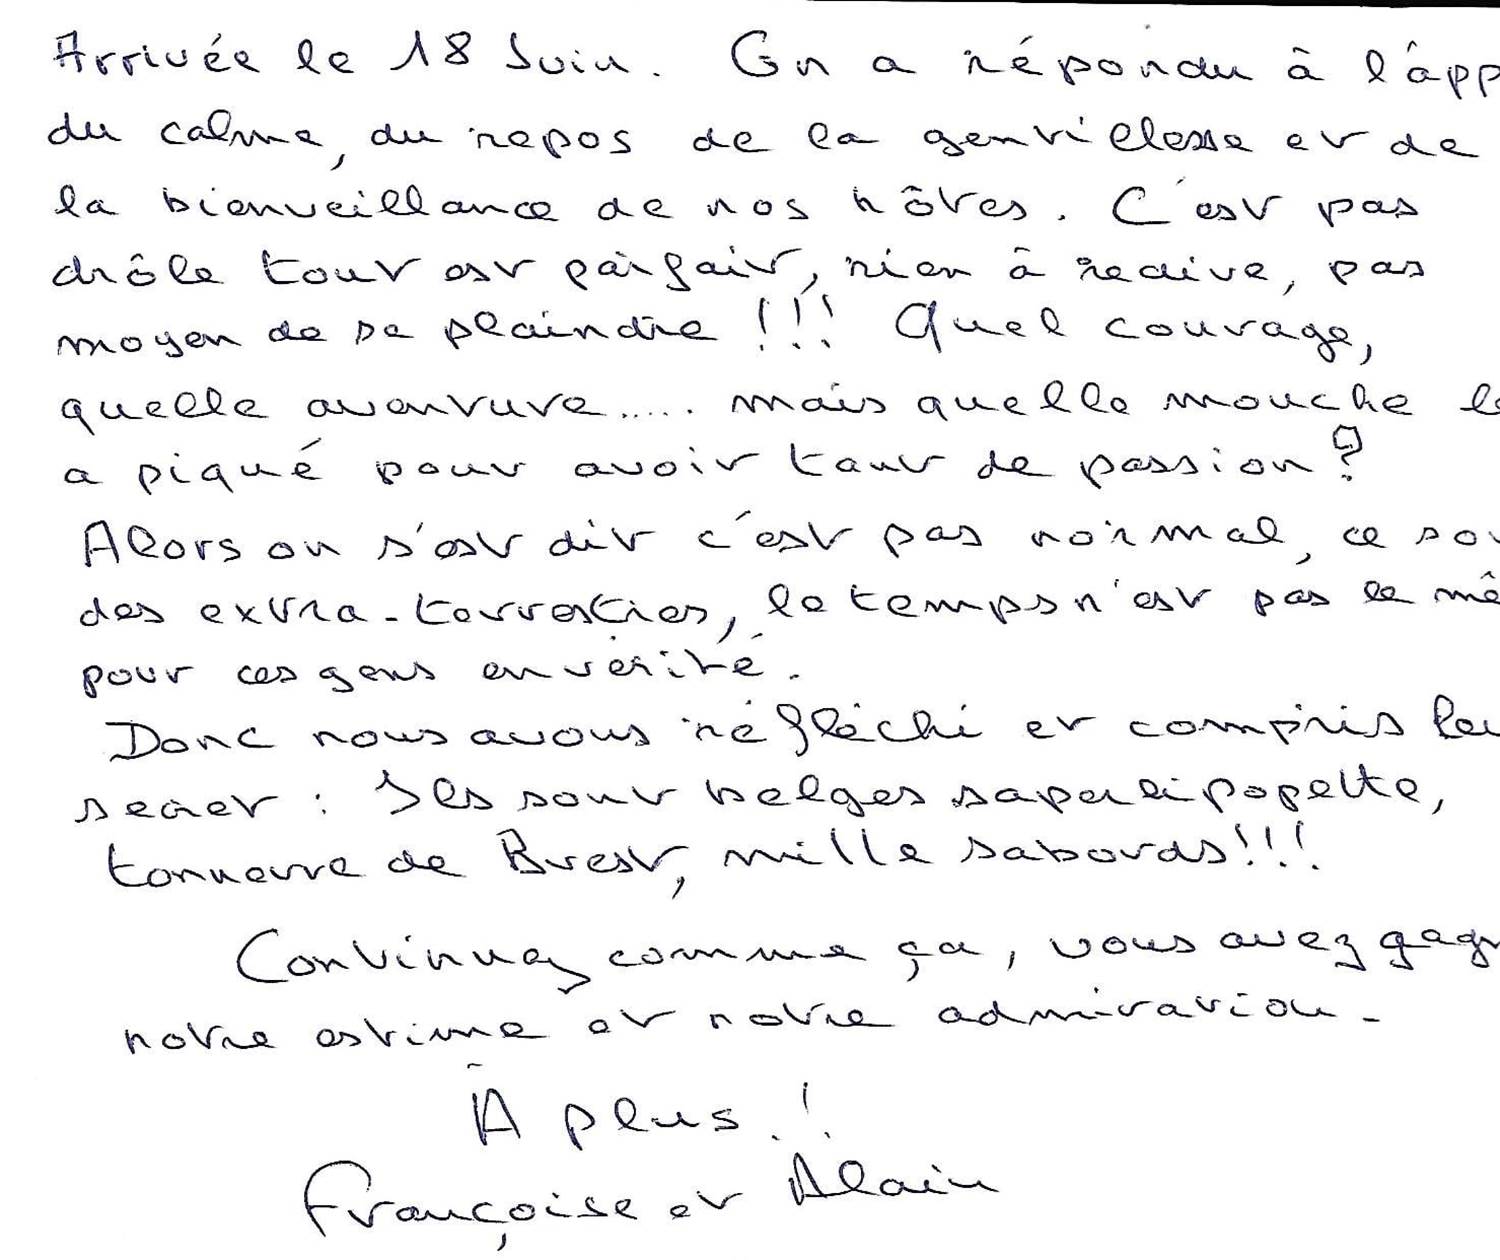 Arrivée le 18 Juin. On a répondu à l'app
du calme, du repos de la gentillesse et de
la bienveillance de nos hôtes. C'est pas
drôle tout est parfait, rien à redire, pas
moyen de se plaindre !!! Quel courage,
quelle aventure..... mais quelle mouche le
a piqué pour avoir tant de passion ?
Alors on s'est dit c'est pas normal, ce so
des extra-terrestres, le temps n'est pas le mê
pour ces gens en vérité.
Donc nous avons réfléchi et compris leu
secret : Ils sont belges saperlipopette,
tonnerre de Brest, mille sabords !!!
Continuez comme ça, vous avez gagn
notre estime et notre admiration -
A plus !
Françoise et Alain